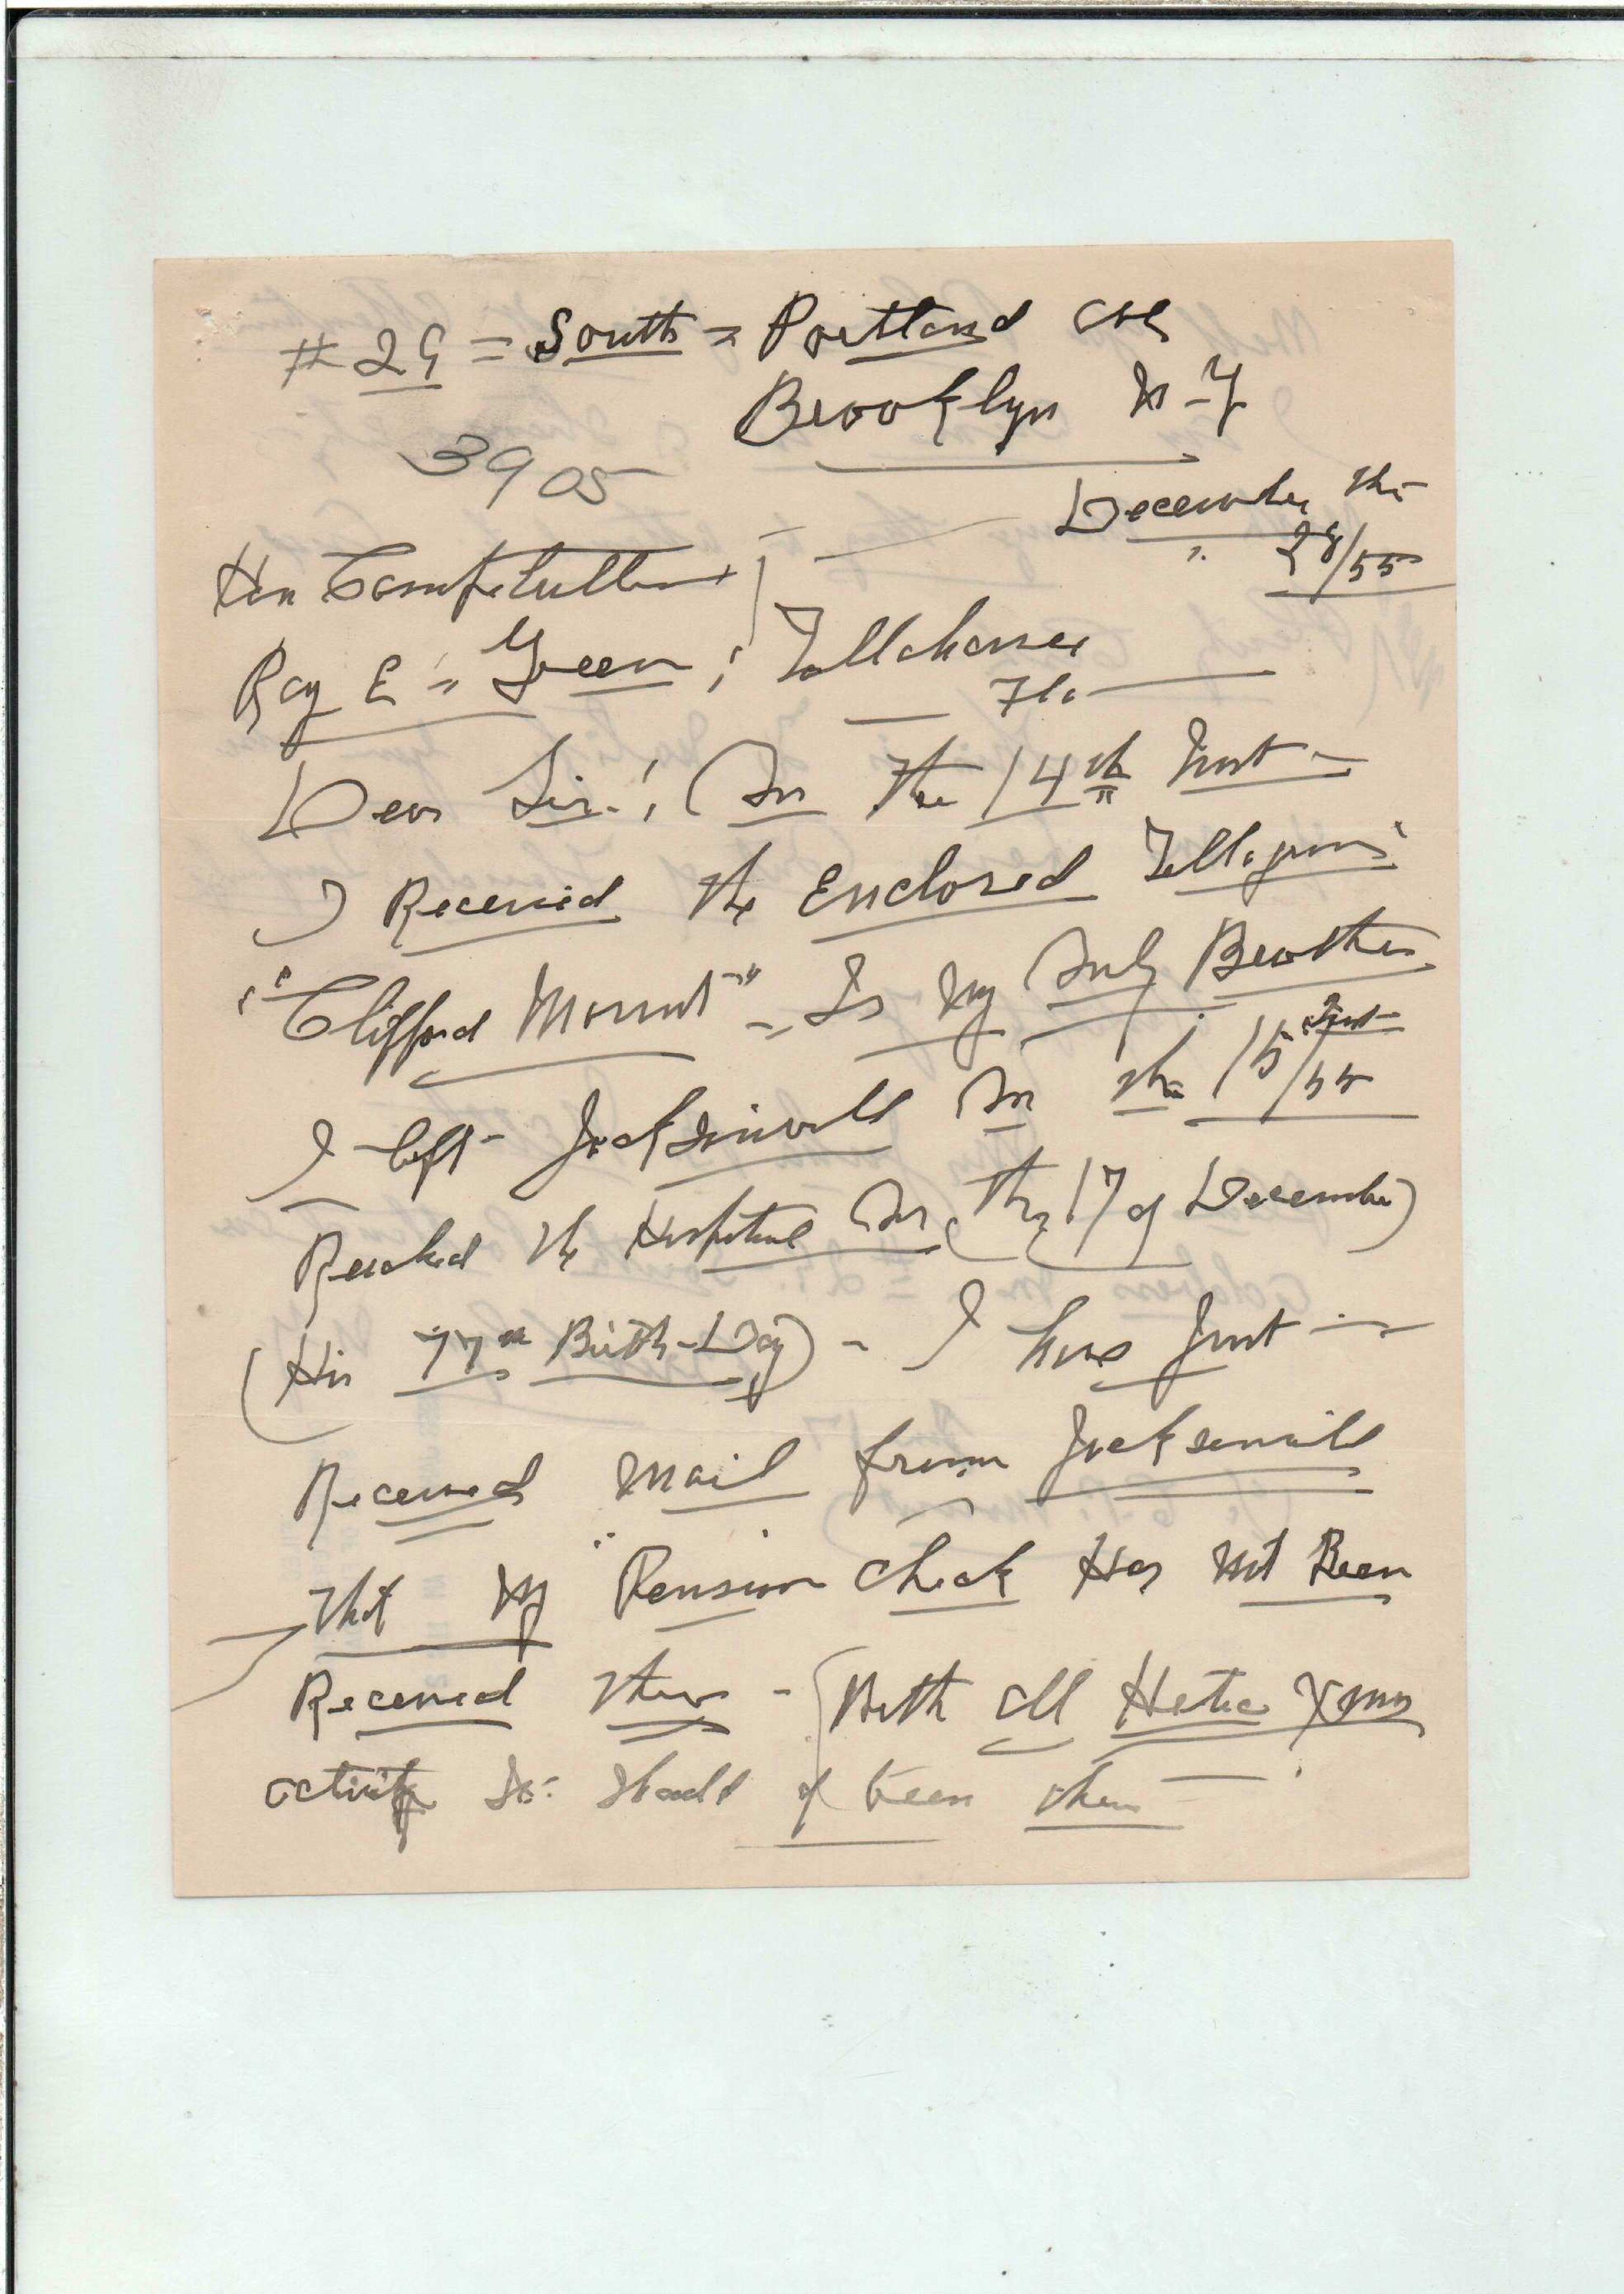 #29 = South = Portland ave
Brooklyn N-Y
3905
December the
28/55
Hon Comptroller
Ray E = Green ; Tallahassee
Fla
Dear Sir! On the 14th Inst -
I Received the Enclosed
"Clifford Mount" - Is my Only Brother
I left Jacksonville On the 15 Inst/55
Reached the Hospital On (The 17 of December)
(His 77th Birth-Day) - I have Just -
Received mail from Jacksonville
That my Pension Check Has Not Been
Received there - With all Hectic Xmas
activity So: should of been there